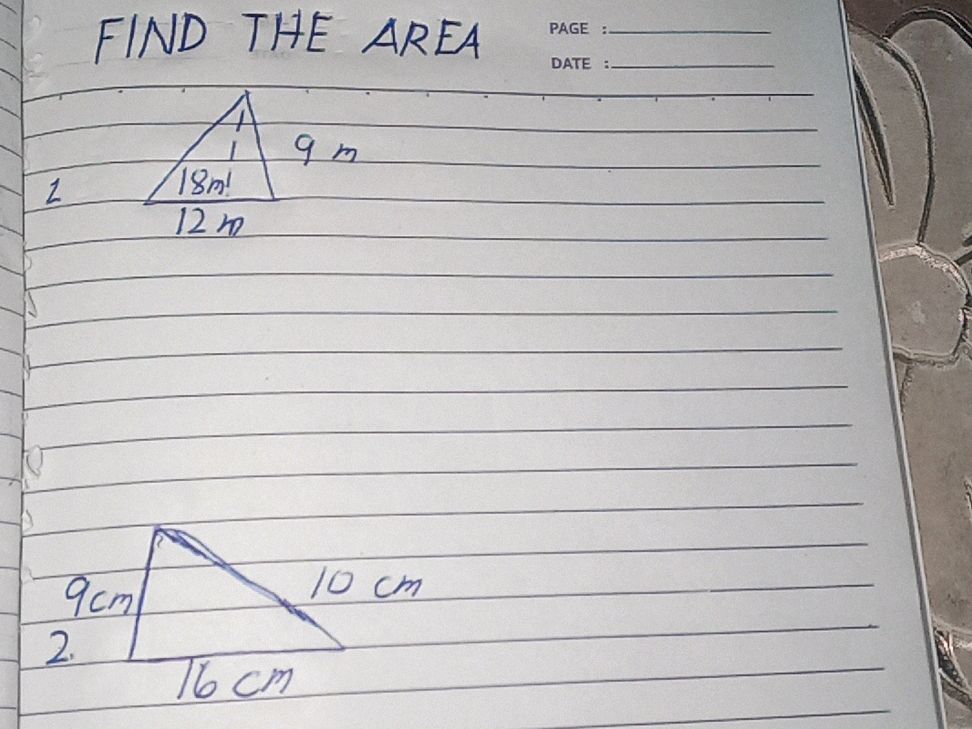 FIND THE AREA
PAGE :
DATE :
9 m
1
18m
12 m
9cm
10 cm
2.
16 cm